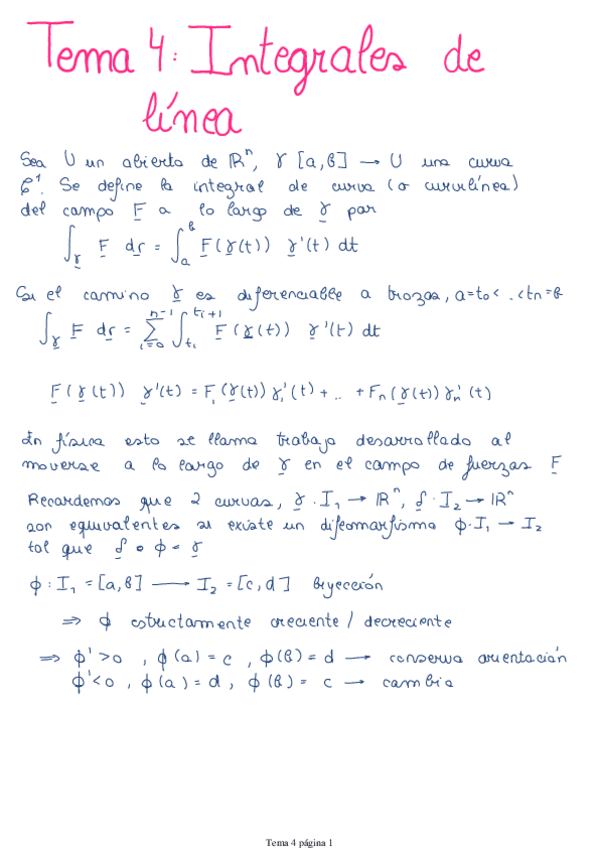 Tema 4: Integrales de
línea
Sea U un abierto de ℝⁿ, γ [a,b] → U una curva
𝒞¹. Se define la integral de curva (o curvilínea)
del campo F a lo largo de γ por
∫_γ F dr = ∫_a^b F(γ(t)) γ'(t) dt
Si el camino γ es diferenciable a trozos, a=t₀< . <tn=b
∫_γ F dr = ∑_{i=0}^{n-1} ∫_{t_i}^{t_{i+1}} F(γ(t)) γ'(t) dt
F(γ(t)) γ'(t) = F₁(γ(t)) γ₁'(t) + .. + Fₙ(γ(t)) γₙ'(t)
En física esto se llama trabajo desarrollado al
moverse a lo largo de γ en el campo de fuerzas F
Recordemos que 2 curvas, γ · I₁ → ℝⁿ, δ · I₂ → ℝⁿ
son equivalentes si existe un difeomorfismo ϕ · I₁ → I₂
tal que δ ∘ ϕ = γ
ϕ : I₁ = [a,b] → I₂ = [c,d] biyección
⇒ ϕ estrictamente creciente / decreciente
⇒ ϕ' >0 , ϕ(a) = c , ϕ(b) = d → conserva orientación
ϕ' <0 , ϕ(a) = d , ϕ(b) = c → cambia
Tema 4 página 1